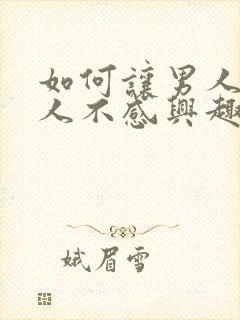 如何讓男人
人不感興趣
娥眉雪